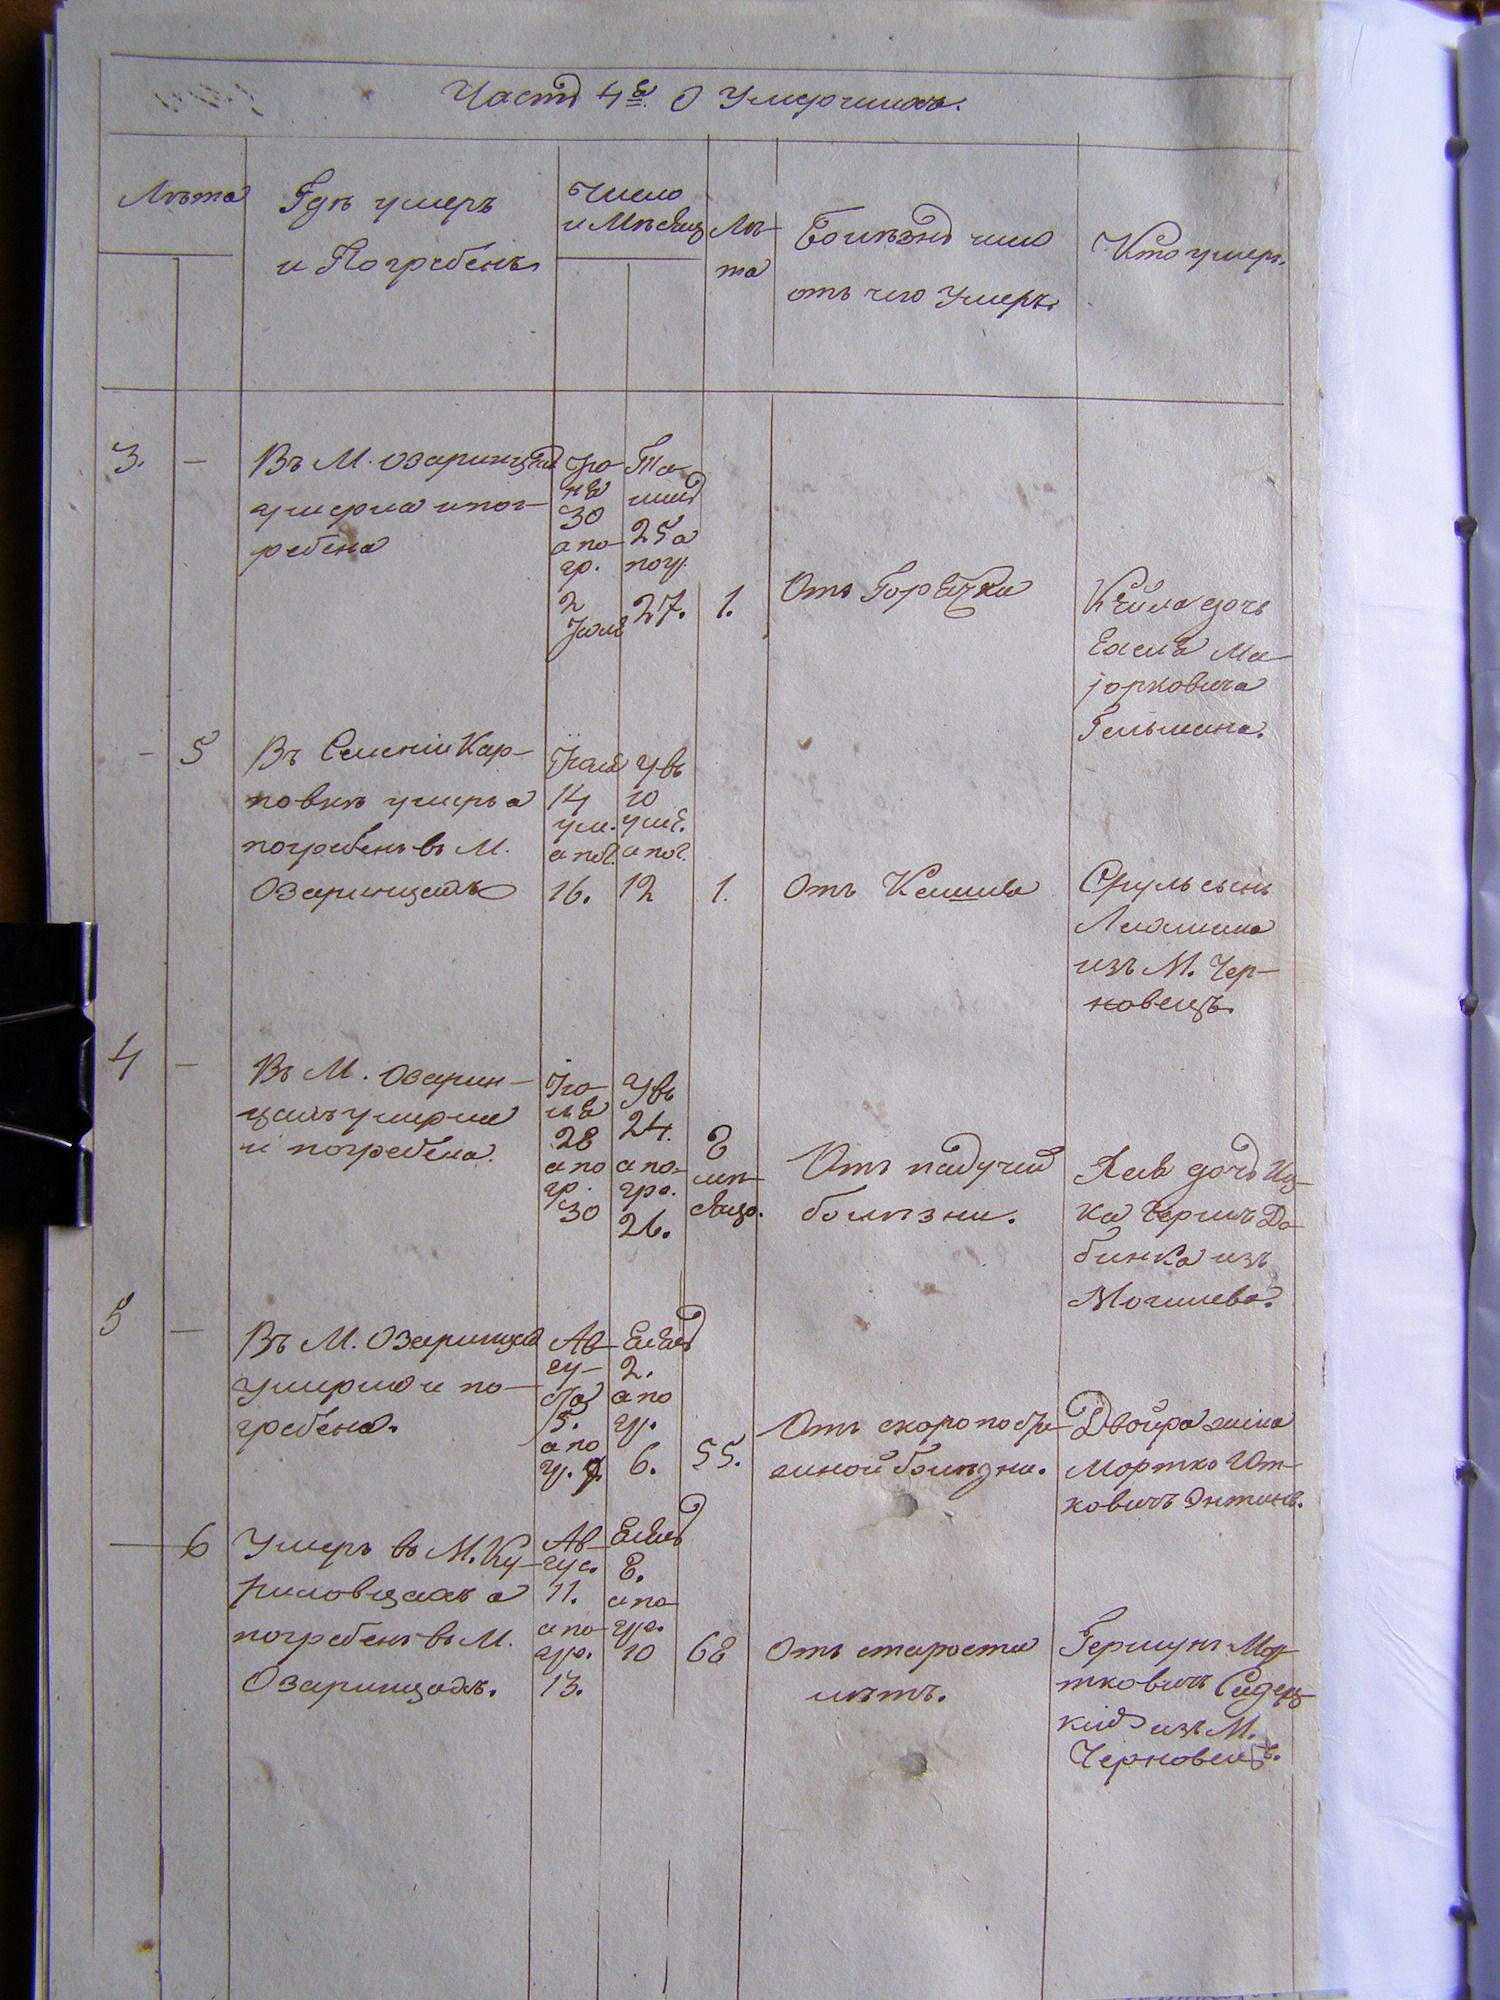 Часть 4я О Умерших.
Лета
Где умеръ
и Погребенъ
Число
и Месяц
Ле-
та
Болезнь или
отъ чего Умеръ.
Кто умеръ.
3. —
Въ М. Озаринцах
умерла и пог-
ребена
Iю-
ня
30
а по-
гр.
2
Iюля
Та-
муз
25 а
погр.
27.
1.
Отъ Горячки
дочь
Ма-
iорковича
Гельмана.
— 5
Въ Селенiи Кар-
повке умеръ а
погребенъ въ М.
Озаринцахъ
Iюля
14
ум.
а пог.
16.
Увъ
10
уме.
а пог.
12
1.
Отъ Кашля
Сруль сынъ
изъ М. Чер-
новецъ.
4 —
Въ М. Озарин-
цахъ умерла
и погребена.
Iю-
ля
28
а по
гр.
30
Увъ
24.
а по-
гре.
26.
8
ме-
сяцо.
Отъ падучей
болезни.
Хая дочь Иц-
ка
изъ
Могилева.
5 —
Въ М. Озаринцах
умерла и по-
гребена.
Ав-
гу-
ста
5.
а по
гр. 9.
Елюл
2.
а по
гр.
6.
55.
Отъ скоропости-
жной болезни.
Двойра жена
Мортко Ют-
ковичъ
— 6
Умеръ въ М. Ку-
риловцахъ а
погребенъ въ М.
Озаринцахъ.
Ав-
гус.
11.
а по-
гре.
13.
Елюл
8.
а по-
гре.
10
68
Отъ старости
летъ.
Гершунъ Мор-
тковичъ Сидец-
кiй изъ М.
Черновецъ.